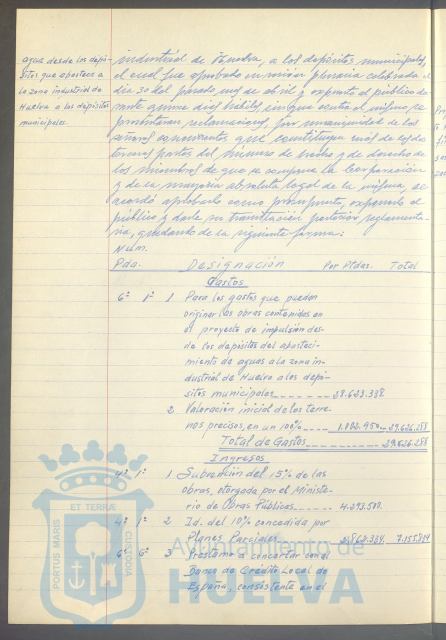 agua desde los depó-
sitos que abastece a
la zona industrial de
Huelva a los depósitos
municipales.
industrial de Huelva, a los depósitos municipales,
el cual fue aprobado en sesión plenaria celebrada el
día 30 del pasado mes de abril y expuesto al público du-
rante quince días hábiles, sin que contra el mismo se
presentaran reclamaciones, por unanimidad de los
señores concurrentes, que constituyen más de las dos
terceras partes del número de hecho y de derecho de
los miembros de que se compone la Corporación
y de su mayoría absoluta legal de la misma, se
acordó aprobarlo como presupuesto, exponerlo al
público y darle su tramitación posterior reglamenta-
ria, quedando de la siguiente forma:
Num.
Pda. Designación Por Ptdas. Total
Gastos
6º 1º 1 Para los gastos que puedan
originar las obras contenidas en
el proyecto de impulsión des-
de los depósitos del abasteci-
miento de aguas a la zona in-
dustrial de Huelva a los depó-
sitos municipales 28.623.338
2 Valoración inicial de los terre-
nos precisos, en un 100% 1.002.950 29.626.288
Total de Gastos 29.626.288
Ingresos
4º 1º 1 Subvención del 15% de las
obras, otorgada por el Ministe-
rio de Obras Públicas 4.293.500
4º 1º 2 Id. del 10% concedida por
Planes Parciales 2.862.334 7.155.834
6º 6º 3 Préstamo a concertar con el
Banco de Crédito Local de
España, consistente en el
PORTUS MARIS
ET TERRÆ
CUSTODIA
Ayuntamiento de
HUELVA